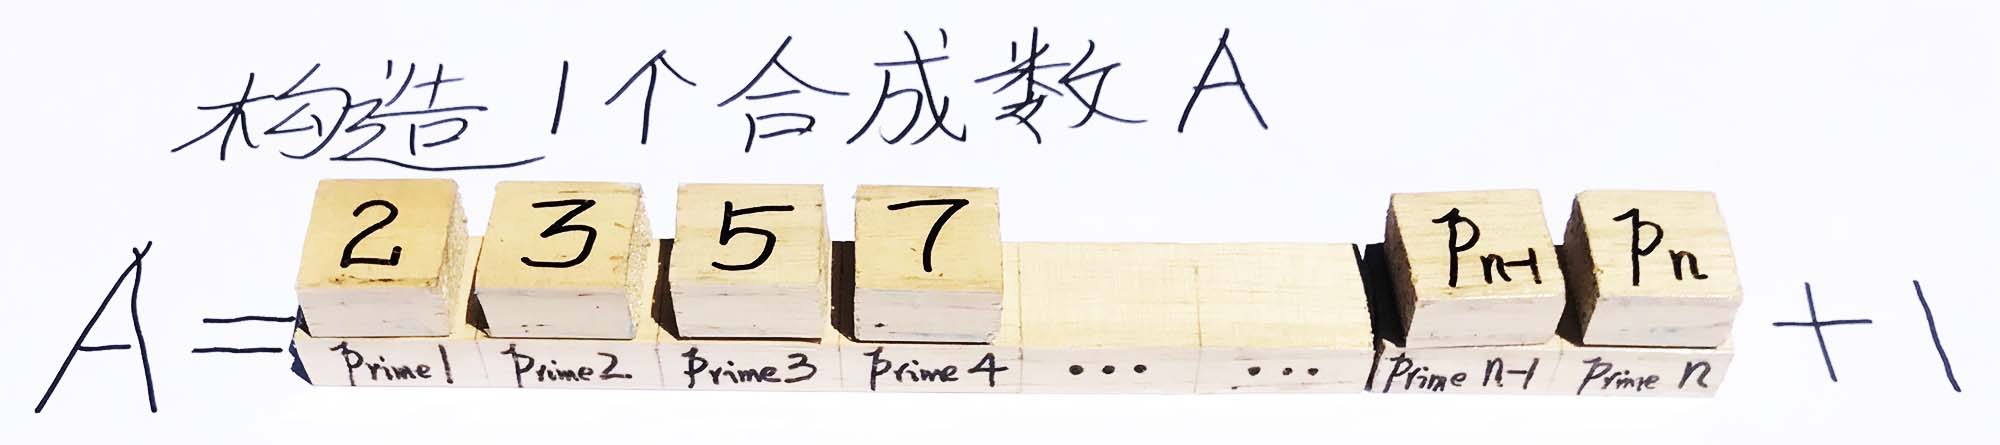 构造1个合成数A
A= 2 3 5 7 Pn-1 Pn +1
Prime1 Prime2. Prime3 Prime4 ... ... Prime n-1 Prime n